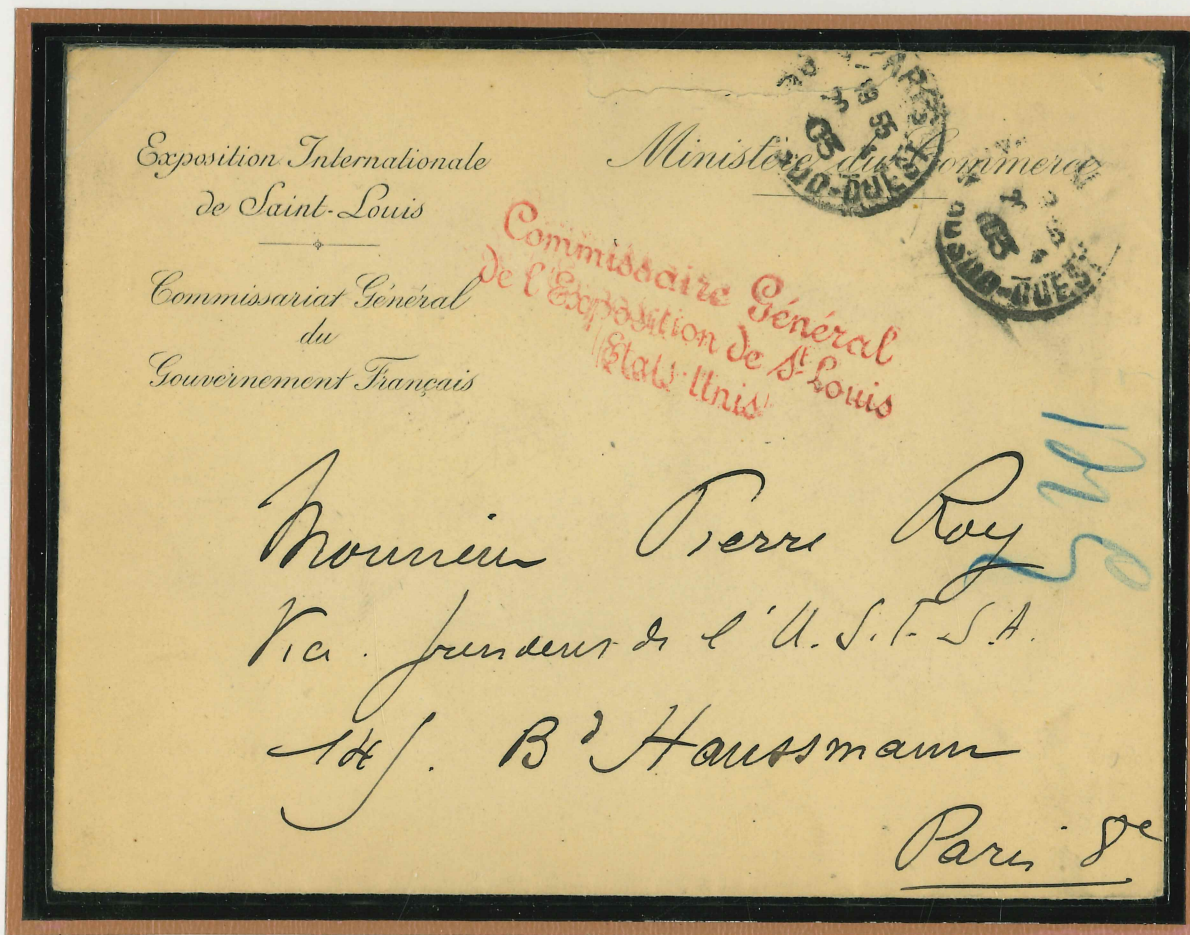 Exposition Internationale
de Saint-Louis
Commissariat Général
du
Gouvernement Français
Ministère du Commerce
PARIS
SUD-OUEST
05
SUD-OUEST
05
Commissaire Général
de l'Exposition de St Louis
États-Unis
Monsieur Pierre Roy
Vice président de l'U. S. F. S. A.
Bd Haussmann
Paris 8e